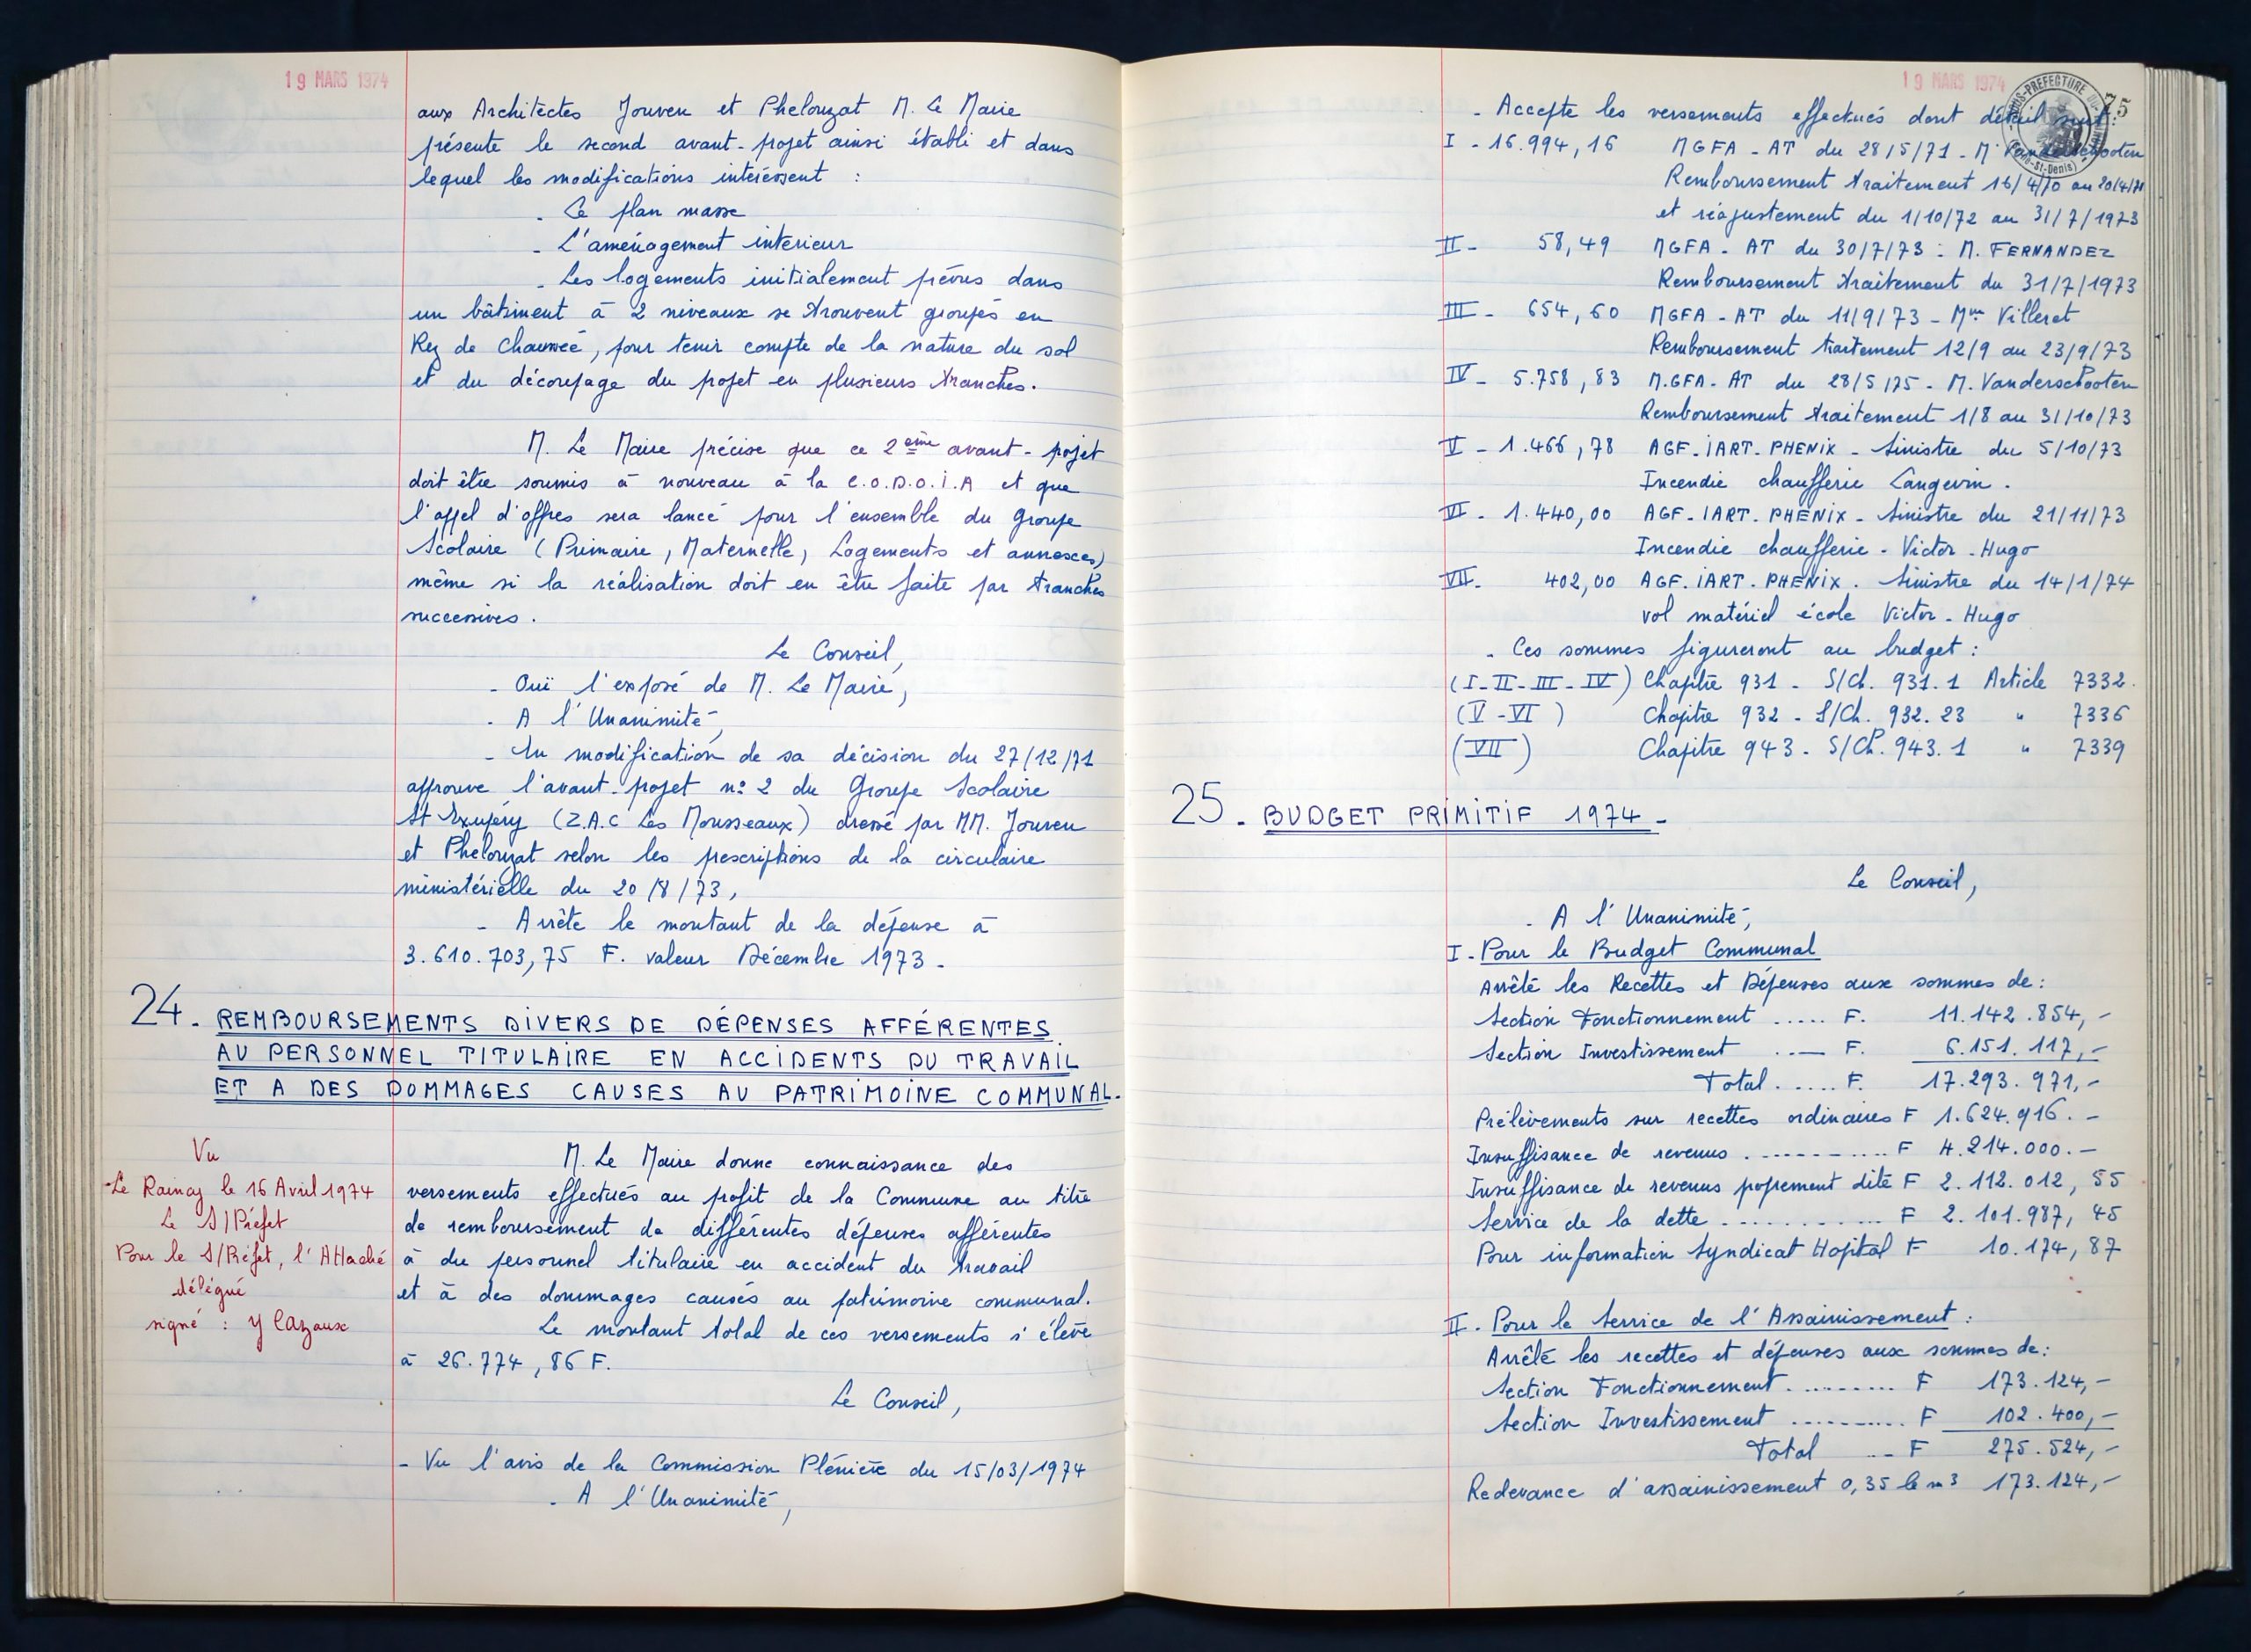 19 MARS 1974
aux Architectes Jouven et Phelouzat M. Le Maire
présente le second avant-projet ainsi établi et dans
lequel les modifications intéressent :
- Le plan masse
- L'aménagement intérieur
- Les logements initialement prévus dans
un bâtiment à 2 niveaux se trouvent groupés en
Rez de chaussée, pour tenir compte de la nature du sol
et du découpage du projet en plusieurs tranches.
M. Le Maire précise que ce 2ème avant-projet
doit être soumis à nouveau à la C.O.D.O.I.A et que
l'appel d'offres sera lancé pour l'ensemble du Groupe
Scolaire (Primaire, Maternelle, Logements et annexes)
même si la réalisation doit en être faite par tranches
successives.
Le Conseil,
- Ouï l'exposé de M. Le Maire,
- A l'Unanimité,
- En modification de sa décision du 27/12/71
approuve l'avant-projet n° 2 du Groupe Scolaire
St Exupéry (Z.A.C Les Mousseaux) dressé par MM. Jouven
et Phelouzat selon les prescriptions de la circulaire
ministérielle du 20/8/73,
- Arrête le montant de la dépense à
3.610.703,75 F. valeur Décembre 1973.
24. REMBOURSEMENTS DIVERS DE DÉPENSES AFFÉRENTES
AU PERSONNEL TITULAIRE EN ACCIDENTS DU TRAVAIL
ET A DES DOMMAGES CAUSES AU PATRIMOINE COMMUNAL.
Vu
Le Raincy le 16 Avril 1974
Le S/Préfet
Pour le S/Préfet, l'Attaché
délégué
signé : Y Cazaux
M. Le Maire donne connaissance des
versements effectués au profit de la Commune au titre
de remboursement de différentes dépenses afférentes
à du personnel titulaire en accident du travail
et à des dommages causés au patrimoine communal.
Le montant total de ces versements s'élève
à 26.774,86 F.
Le Conseil,
- Vu l'avis de la Commission Plénière du 15/03/1974
- A l'Unanimité,
19 MARS 1974
SOUS-PREFECTURE DU
(Seine-St-Denis)
75
- Accepte les versements effectués dont détail suit :
I - 16.994,16 MGFA - AT du 28/5/71 - M. Vanderschooten
Remboursement traitement 16/4/70 au 20/4/71
et réajustement du 1/10/72 au 31/7/1973
II - 58,49 MGFA - AT du 30/7/73 : M. FERNANDEZ
Remboursement traitement du 31/7/1973
III - 654,60 MGFA - AT du 11/9/73 - Mme Villeret
Remboursement traitement 12/9 au 23/9/73
IV - 5.758,83 M.GFA - AT du 28/5/75 - M. Vanderschooten
Remboursement traitement 1/8 au 31/10/73
V - 1.466,78 AGF.IART.PHENIX - Sinistre du 5/10/73
Incendie chaufferie Langevin.
VI - 1.440,00 AGF.IART.PHENIX - Sinistre du 21/11/73
Incendie chaufferie - Victor-Hugo
VII - 402,00 AGF.IART.PHENIX. Sinistre du 14/1/74
vol matériel école Victor-Hugo
- Ces sommes figureront au budget :
(I-II-III-IV) Chapitre 931 - S/Ch. 931.1 Article 7332.
(V-VI) Chapitre 932 - S/Ch. 932.23 " 7336
(VII) Chapitre 943 - S/Ch. 943.1 " 7339
25. BUDGET PRIMITIF 1974 -
Le Conseil,
- A l'Unanimité,
I - Pour le Budget Communal
Arrêté les Recettes et Dépenses aux sommes de :
Section Fonctionnement ..... F. 11.142.854,-
Section Investissement .... F. 6.151.117,-
Total ...... F. 17.293.971,-
Prélèvements sur recettes ordinaires F 1.624.916.-
Insuffisance de revenus ............ F 4.214.000.-
Insuffisance de revenus proprement dite F 2.112.012,55
Service de la dette ............ F 2.101.987,45
Pour information Syndicat Hopital F 10.174,87
II - Pour le Service de l'Assainissement :
Arrêté les recettes et dépenses aux sommes de :
Section Fonctionnement .......... F 173.124,-
Section Investissement .......... F 102.400,-
Total ... F 275.524,-
Redevance d'assainissement 0,35 le m3 173.124,-